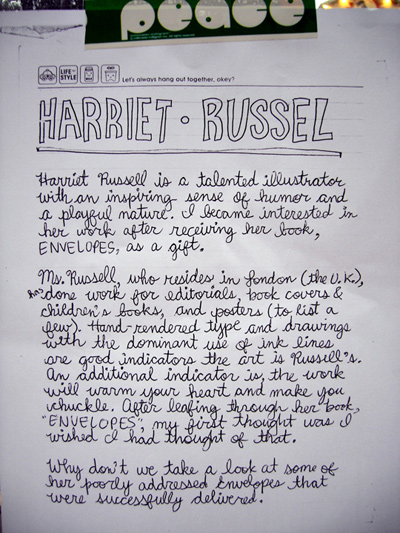 peace
LIFE STYLE
Let's always hang out together, okey?
HARRIET · RUSSEL
Harriet Russell is a talented illustrator
with an inspiring sense of humor and
a playful nature. I became interested in
her work after receiving her book,
ENVELOPES, as a gift.
Ms. Russell, who resides in London (the U.K.),
has done work for editorials, book covers &
children's books, and posters (to list a
few). Hand-rendered type and drawings
with the dominant use of ink lines
are good indicators the art is Russell's.
An additional indicator is, the work
will warm your heart and make you
chuckle. After leafing through her book,
"ENVELOPES", my first thought was I
wished I had thought of that.
Why don't we take a look at some of
her poorly addressed envelopes that
were successfully delivered.